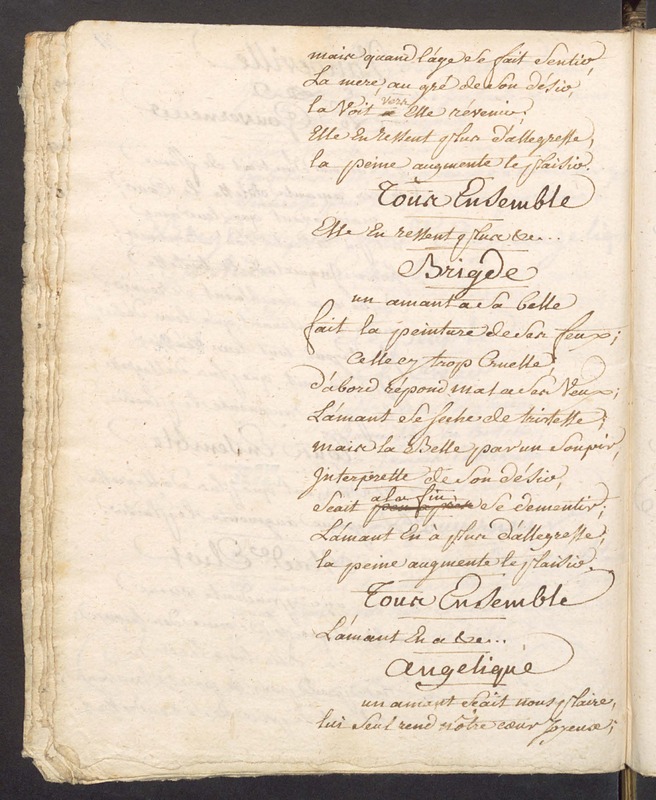 mais quand l'âge se fait sentir,
La mere au gré de son désir,
la Voit vers Elle révenir;
Elle En Ressent plus d'allegresse,
la peine augmente le plaisir.
Tous Ensemble
Elle En ressent plus &c...
Brigde
un amant a sa belle
fait la peinture de ses feux;
Celle cy trop Cruelle,
d'abord répond mal a ses Veux;
L'amant se seche de tristesse;
mais la Belle par un soupir,
Interprette de son désir,
Seait a la fin se dementir;
L'amant En à plus d'allegresse;
la peine augmente le plaisir.
Tous Ensemble
L'amant En a &c...
angelique
un amant seait nous plaire,
lui seul rend nôtre cœur Joyeux;